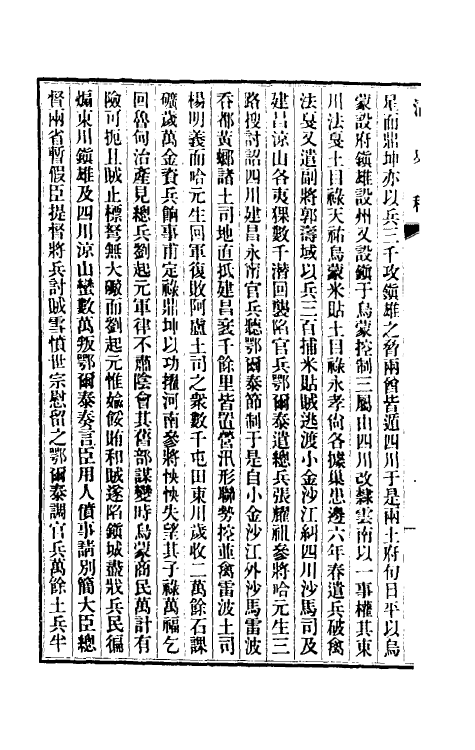 是而鼎坤亦以兵三千攻鎭雄之脅兩酋皆遁四川于是兩土府旬日平以烏
蒙設府鎭雄設州又設鎭于烏蒙控制三屬由四川改隸雲南以一事權其東
川法戛土目祿天祐烏蒙米貼土目祿永孝尙各據巢患邊六年春遣兵破禽
法戛又遣副將郭壽域以兵三百捕米貼賊逃渡小金沙江糾四川沙馬司及
建昌涼山各夷猓數千潛回襲陷官兵鄂爾泰遣總兵張耀祖參將哈元生三
路搜討詔四川建昌永甯官兵聽鄂爾泰節制于是自小金沙江外沙馬雷波
呑都黃螂諸土司地直抵建昌袤千餘里皆置營汛形聯勢控並禽雷波土司
楊明義而哈元生回軍復敗阿盧土司之衆數千屯田東川歲收二萬餘石課
礦歲萬金資兵餉事甫定祿鼎坤以功擢河南參將怏怏失望其子祿萬福乞
回魯甸治產見總兵劉起元軍律不肅陰會其舊部謀變時烏蒙商民萬計有
險可扼且賊止標弩無大礮而劉起元惟媮餒賄和賊遂陷鎭城盡戕兵民徧
煽東川鎭雄及四川涼山蠻數萬叛鄂爾泰奏言臣用人僨事請別簡大臣總
督兩省暫假臣提督將兵討賊雪憤世宗慰留之鄂爾泰調官兵萬餘土兵半